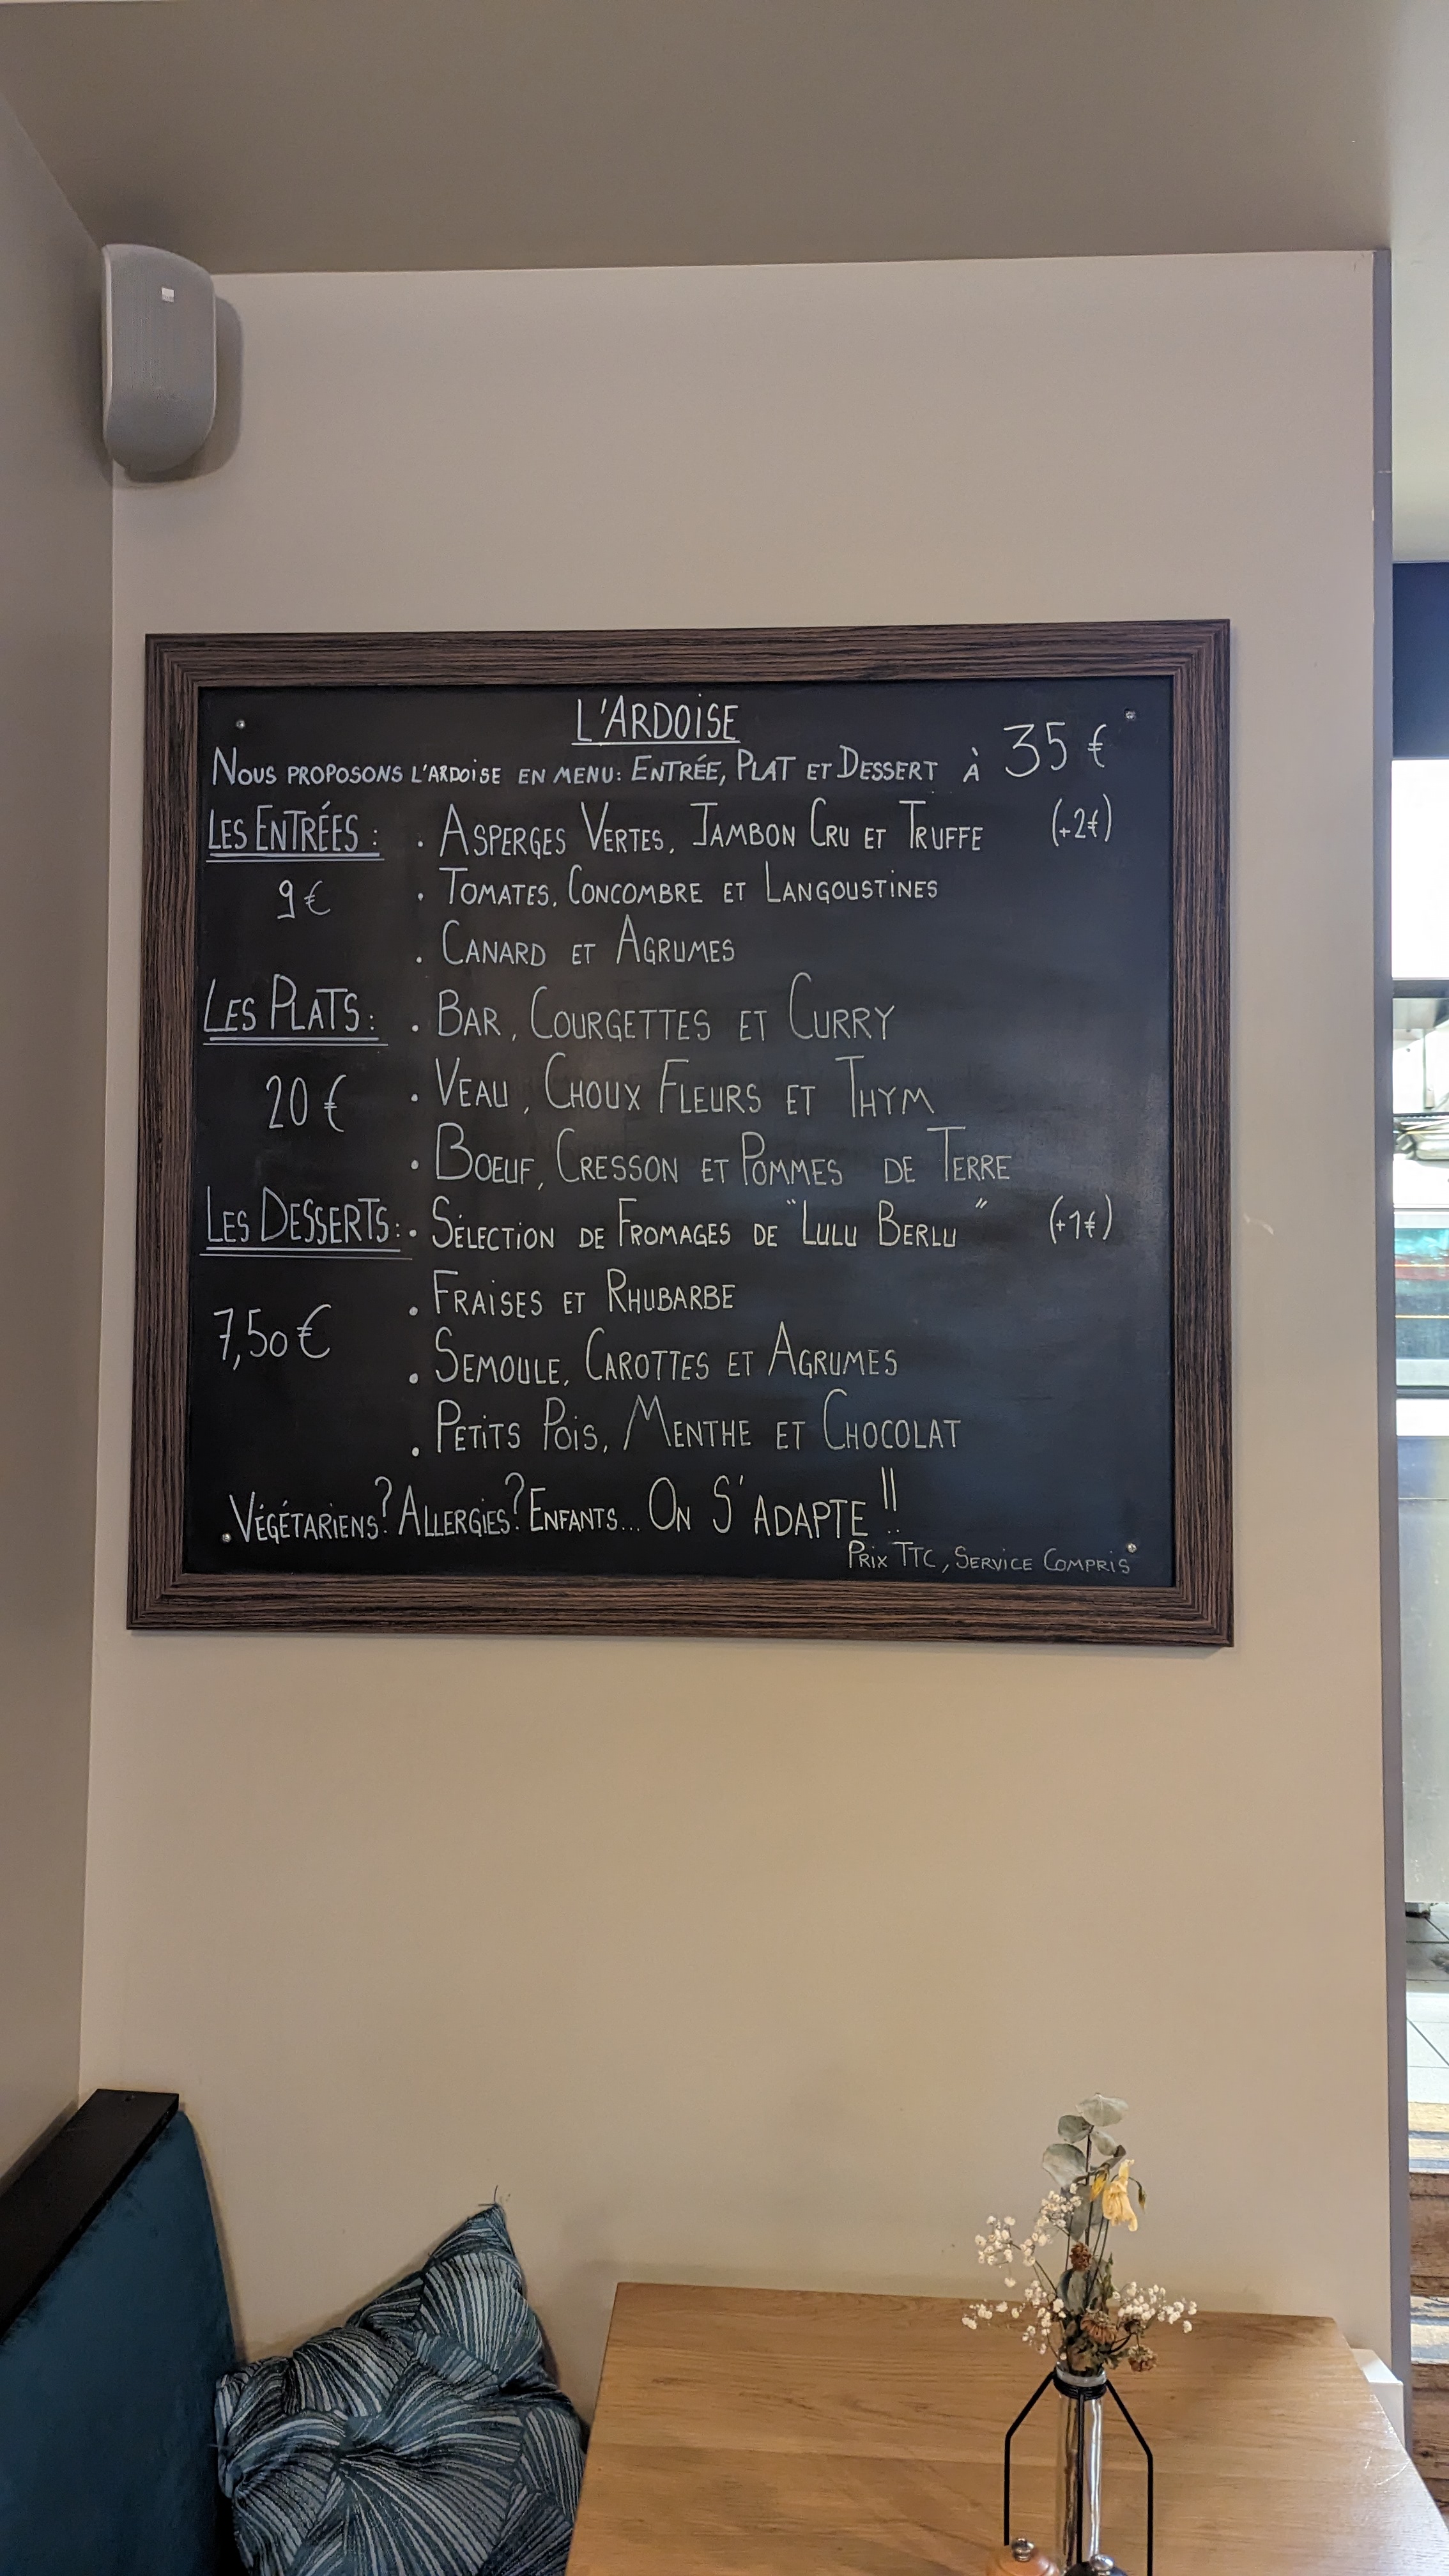 L'ARDOISE
NOUS PROPOSONS L'ARDOISE EN MENU: ENTRÉE, PLAT ET DESSERT À 35 €
LES ENTRÉES : . ASPERGES VERTES, JAMBON CRU ET TRUFFE (+2€)
9€ . TOMATES, CONCOMBRE ET LANGOUSTINES
. CANARD ET AGRUMES
LES PLATS : . BAR, COURGETTES ET CURRY
20 € . VEAU, CHOUX FLEURS ET THYM
. BOEUF, CRESSON ET POMMES DE TERRE
LES DESSERTS : . SÉLECTION DE FROMAGES DE "LULU BERLU" (+1€)
. FRAISES ET RHUBARBE
7,50€ . SEMOULE, CAROTTES ET AGRUMES
. PETITS POIS, MENTHE ET CHOCOLAT
. VÉGÉTARIENS? ALLERGIES? ENFANTS... ON S'ADAPTE !!
PRIX TTC, SERVICE COMPRIS